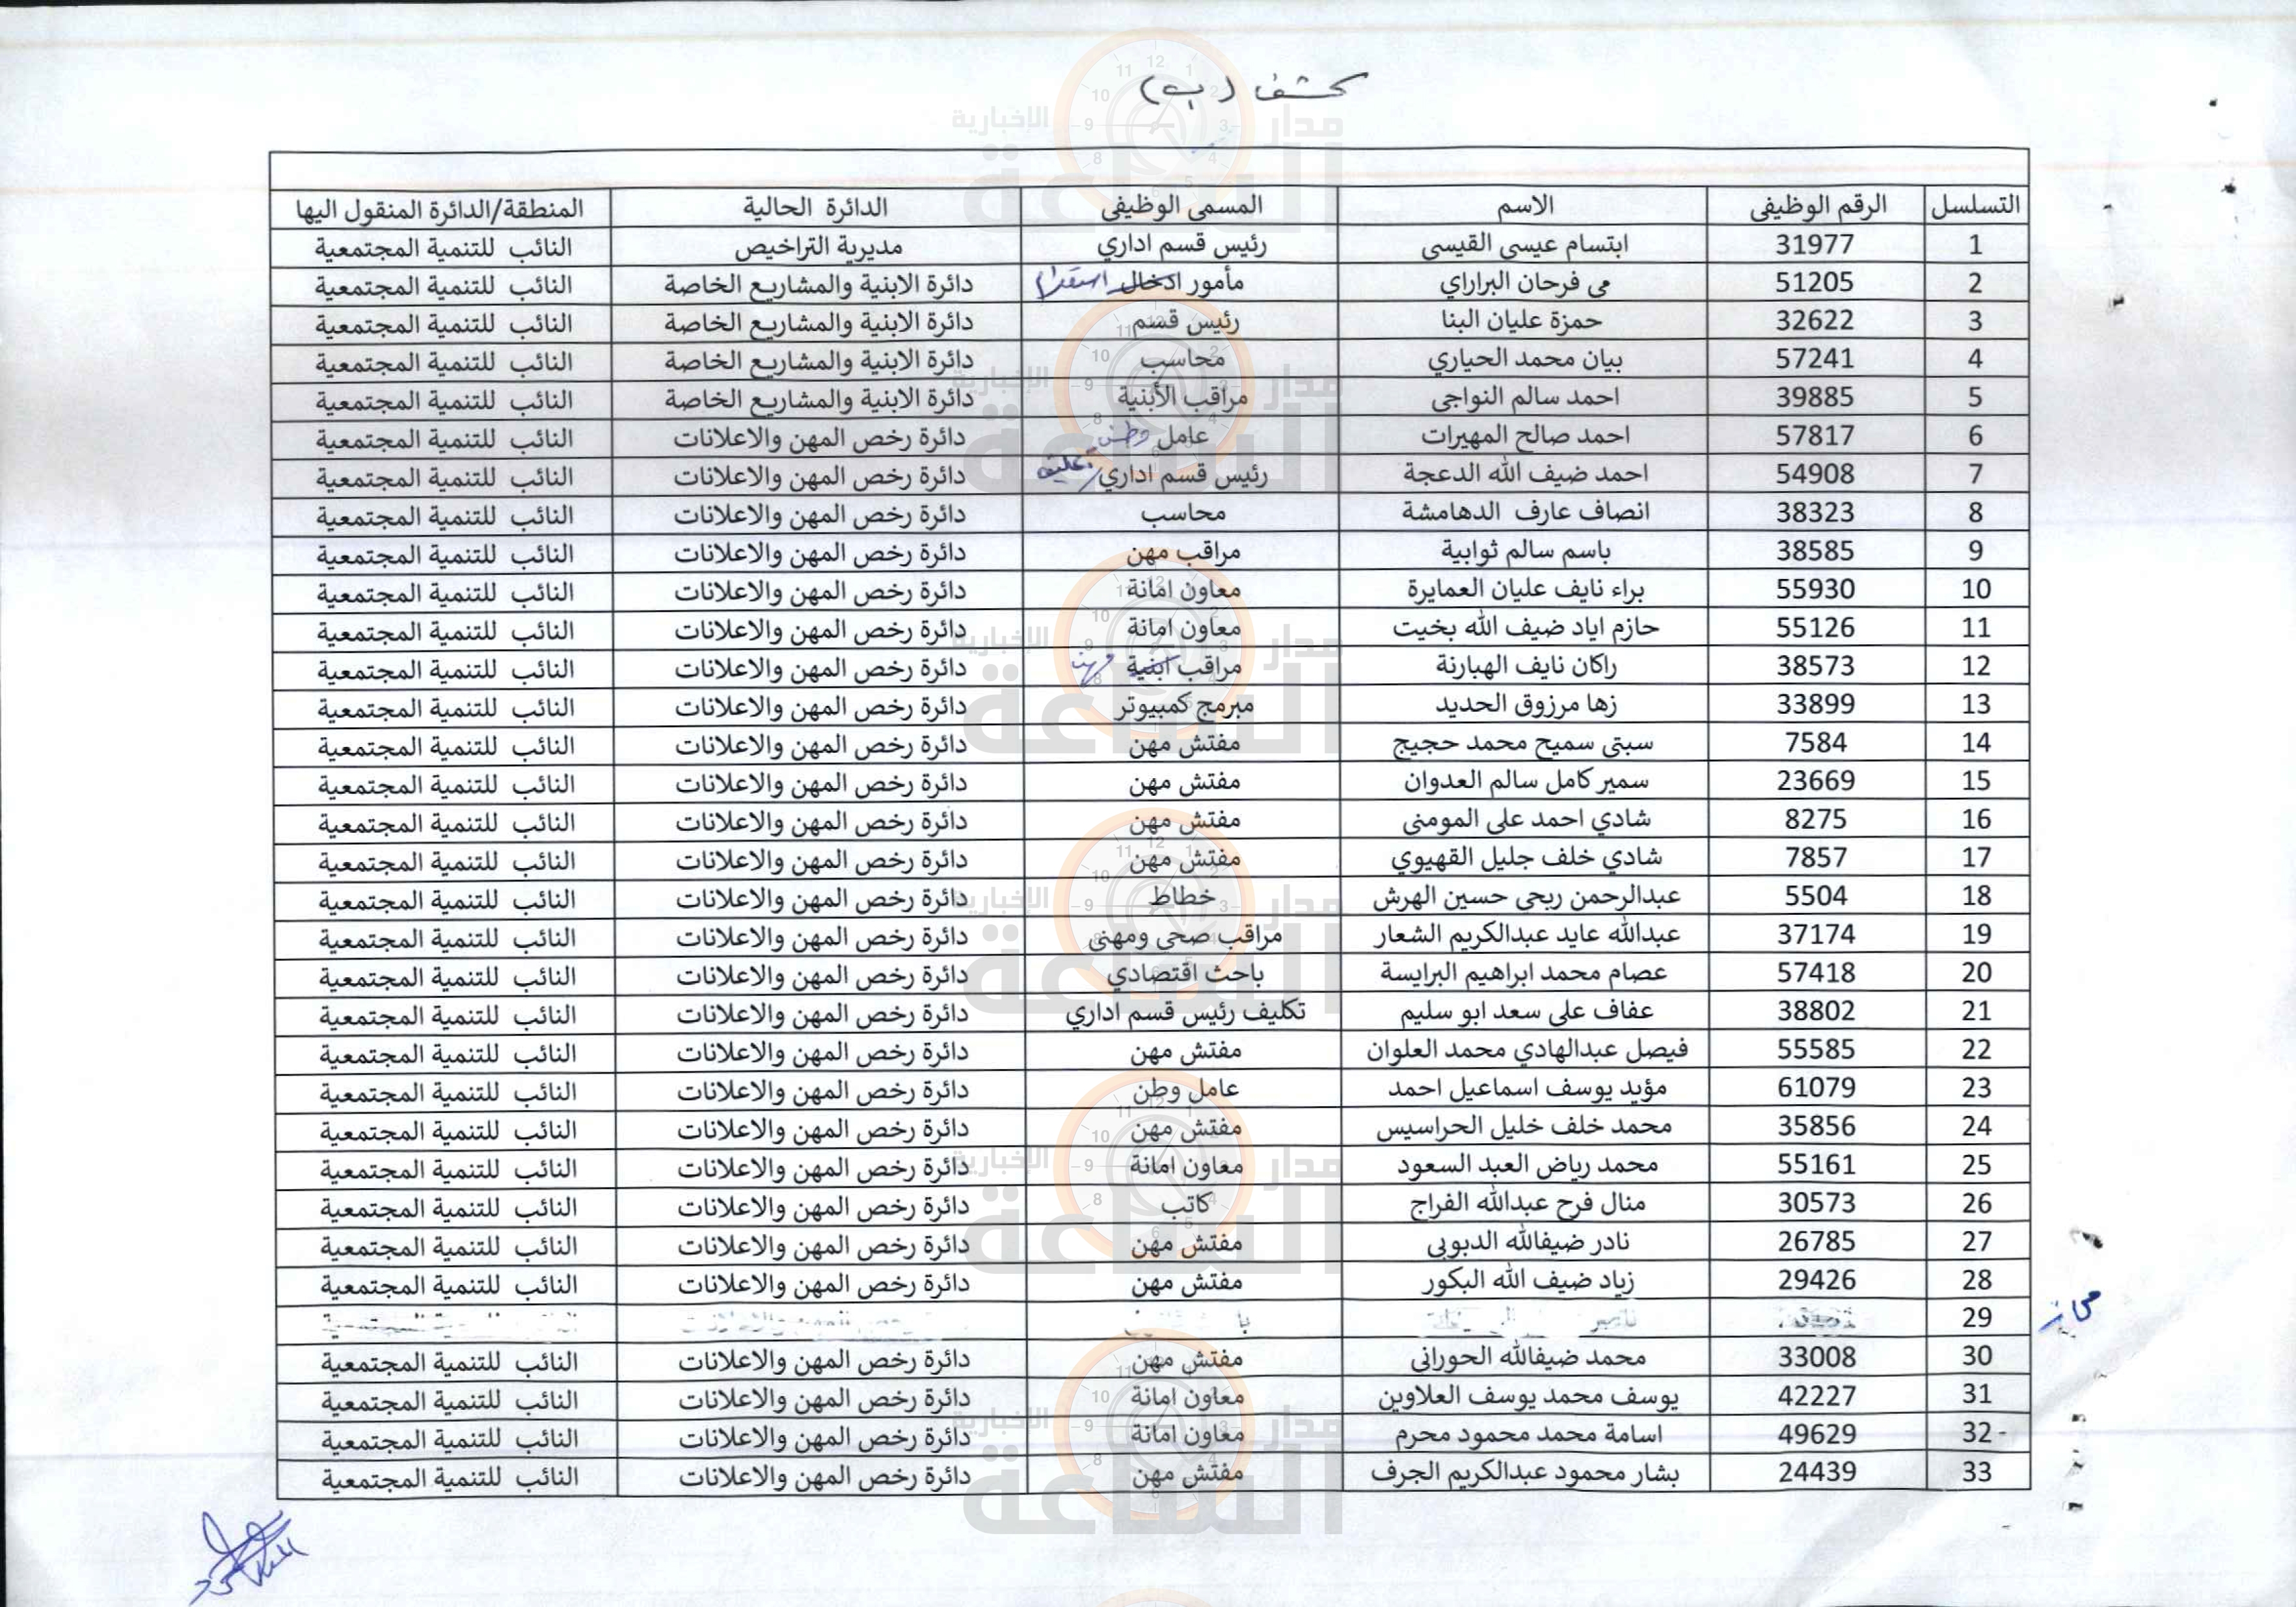 كشف (ب)
التسلسل الرقم الوظيفي الاسم المسمى الوظيفي الدائرة الحالية المنطقة/الدائرة المنقول اليها
1 31977 ابتسام عيسى القيسى رئيس قسم اداري مديرية التراخيص النائب للتنمية المجتمعية
2 51205 مى فرحان البراراي مأمور ادخال دائرة الابنية والمشاريع الخاصة النائب للتنمية المجتمعية
3 32622 حمزة عليان البنا رئيس قسم دائرة الابنية والمشاريع الخاصة النائب للتنمية المجتمعية
4 57241 بيان محمد الحياري محاسب دائرة الابنية والمشاريع الخاصة النائب للتنمية المجتمعية
5 39885 احمد سالم النواجى مراقب الأبنية دائرة الابنية والمشاريع الخاصة النائب للتنمية المجتمعية
6 57817 احمد صالح المهيرات عامل وطن دائرة رخص المهن والاعلانات النائب للتنمية المجتمعية
7 54908 احمد ضيف الله الدعجة رئيس قسم اداري/تكليف دائرة رخص المهن والاعلانات النائب للتنمية المجتمعية
8 38323 انصاف عارف الدهامشة محاسب دائرة رخص المهن والاعلانات النائب للتنمية المجتمعية
9 38585 باسم سالم ثوابية مراقب مهن دائرة رخص المهن والاعلانات النائب للتنمية المجتمعية
10 55930 براء نايف عليان العمايرة معاون امانة دائرة رخص المهن والاعلانات النائب للتنمية المجتمعية
11 55126 حازم اياد ضيف الله بخيت معاون امانة دائرة رخص المهن والاعلانات النائب للتنمية المجتمعية
12 38573 راكان نايف الهبارنة مراقب ابنية مهن دائرة رخص المهن والاعلانات النائب للتنمية المجتمعية
13 33899 زها مرزوق الحديد مبرمج كمبيوتر دائرة رخص المهن والاعلانات النائب للتنمية المجتمعية
14 7584 سبتى سميح محمد حجيج مفتش مهن دائرة رخص المهن والاعلانات النائب للتنمية المجتمعية
15 23669 سمير كامل سالم العدوان مفتش مهن دائرة رخص المهن والاعلانات النائب للتنمية المجتمعية
16 8275 شادي احمد على المومنى مفتش مهن دائرة رخص المهن والاعلانات النائب للتنمية المجتمعية
17 7857 شادي خلف جليل القهيوي مفتش مهن دائرة رخص المهن والاعلانات النائب للتنمية المجتمعية
18 5504 عبدالرحمن ربحى حسين الهرش خطاط دائرة رخص المهن والاعلانات النائب للتنمية المجتمعية
19 37174 عبدالله عايد عبدالكريم الشعار مراقب صحى ومهنى دائرة رخص المهن والاعلانات النائب للتنمية المجتمعية
20 57418 عصام محمد ابراهيم البرايسة باحث اقتصادي دائرة رخص المهن والاعلانات النائب للتنمية المجتمعية
21 38802 عفاف على سعد ابو سليم تكليف رئيس قسم اداري دائرة رخص المهن والاعلانات النائب للتنمية المجتمعية
22 55585 فيصل عبدالهادي محمد العلوان مفتش مهن دائرة رخص المهن والاعلانات النائب للتنمية المجتمعية
23 61079 مؤيد يوسف اسماعيل احمد عامل وطن دائرة رخص المهن والاعلانات النائب للتنمية المجتمعية
24 35856 محمد خلف خليل الحراسيس مفتش مهن دائرة رخص المهن والاعلانات النائب للتنمية المجتمعية
25 55161 محمد رياض العبد السعود معاون امانة دائرة رخص المهن والاعلانات النائب للتنمية المجتمعية
26 30573 منال فرح عبدالله الفراج كاتب دائرة رخص المهن والاعلانات النائب للتنمية المجتمعية
27 26785 نادر ضيفالله الدبوبى مفتش مهن دائرة رخص المهن والاعلانات النائب للتنمية المجتمعية
28 29426 زياد ضيف الله البكور مفتش مهن دائرة رخص المهن والاعلانات النائب للتنمية المجتمعية
29
30 33008 محمد ضيفالله الحورانى مفتش مهن دائرة رخص المهن والاعلانات النائب للتنمية المجتمعية
31 42227 يوسف محمد يوسف العلاوين معاون امانة دائرة رخص المهن والاعلانات النائب للتنمية المجتمعية
32 49629 اسامة محمد محمود محرم معاون امانة دائرة رخص المهن والاعلانات النائب للتنمية المجتمعية
33 24439 بشار محمود عبدالكريم الجرف مفتش مهن دائرة رخص المهن والاعلانات النائب للتنمية المجتمعية
مدار الساعة الإخبارية